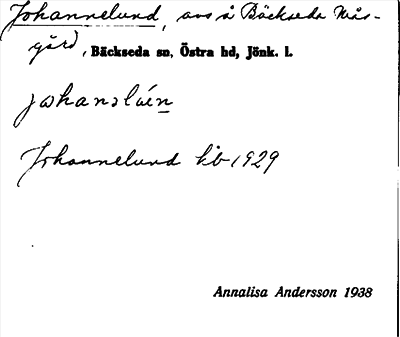 Johannelund, avs å Bäckseda Präs-
gård, Bäckseda sn, Östra hd, Jönk. l.
Johannelund kb 1929
Annalisa Andersson 1938